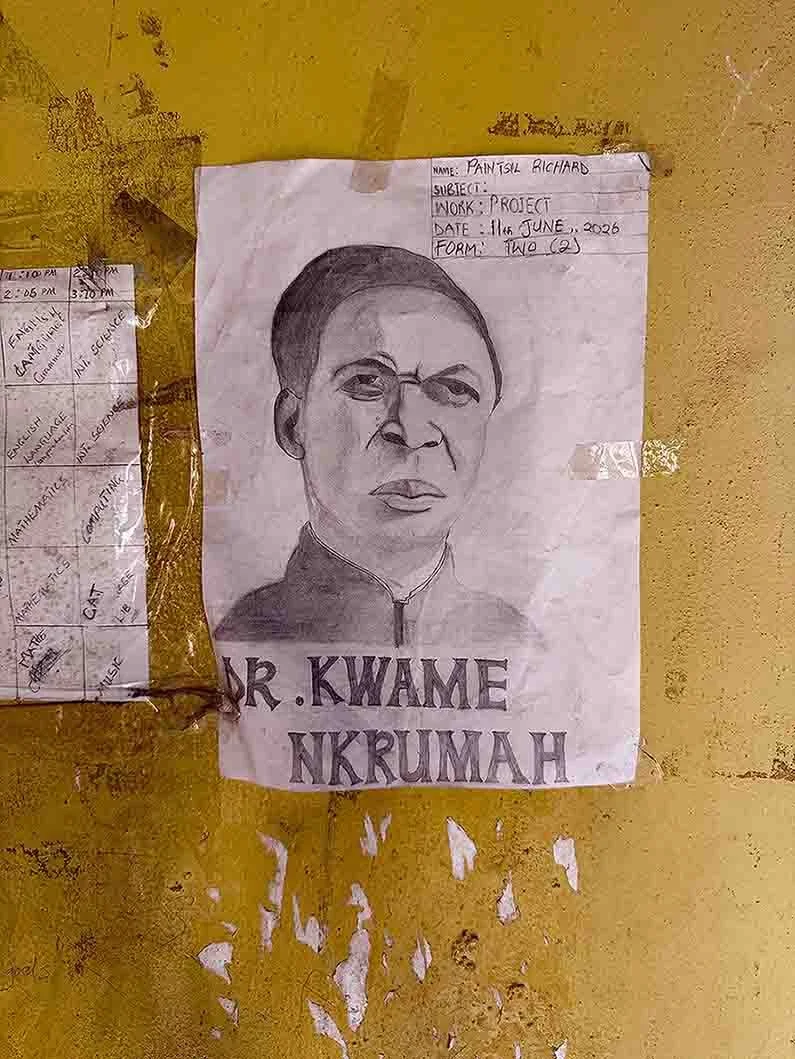 1:10 PM
2:05 PM 3:10 PM
ENGLISH
LANGUAGE
Grammar
INT. SCIENCE
ENGLISH
LANGUAGE
INT. SCIENCE
MATHEMATICS
COMPUTING
MATHEMATICS
CAT
LIB
MATHS
MUSIC
NAME: PAINTSIL RICHARD
SUBJECT:
WORK: PROJECT
DATE : 11th JUNE,, 2026
FORM: TWO (2)
DR. KWAME
NKRUMAH